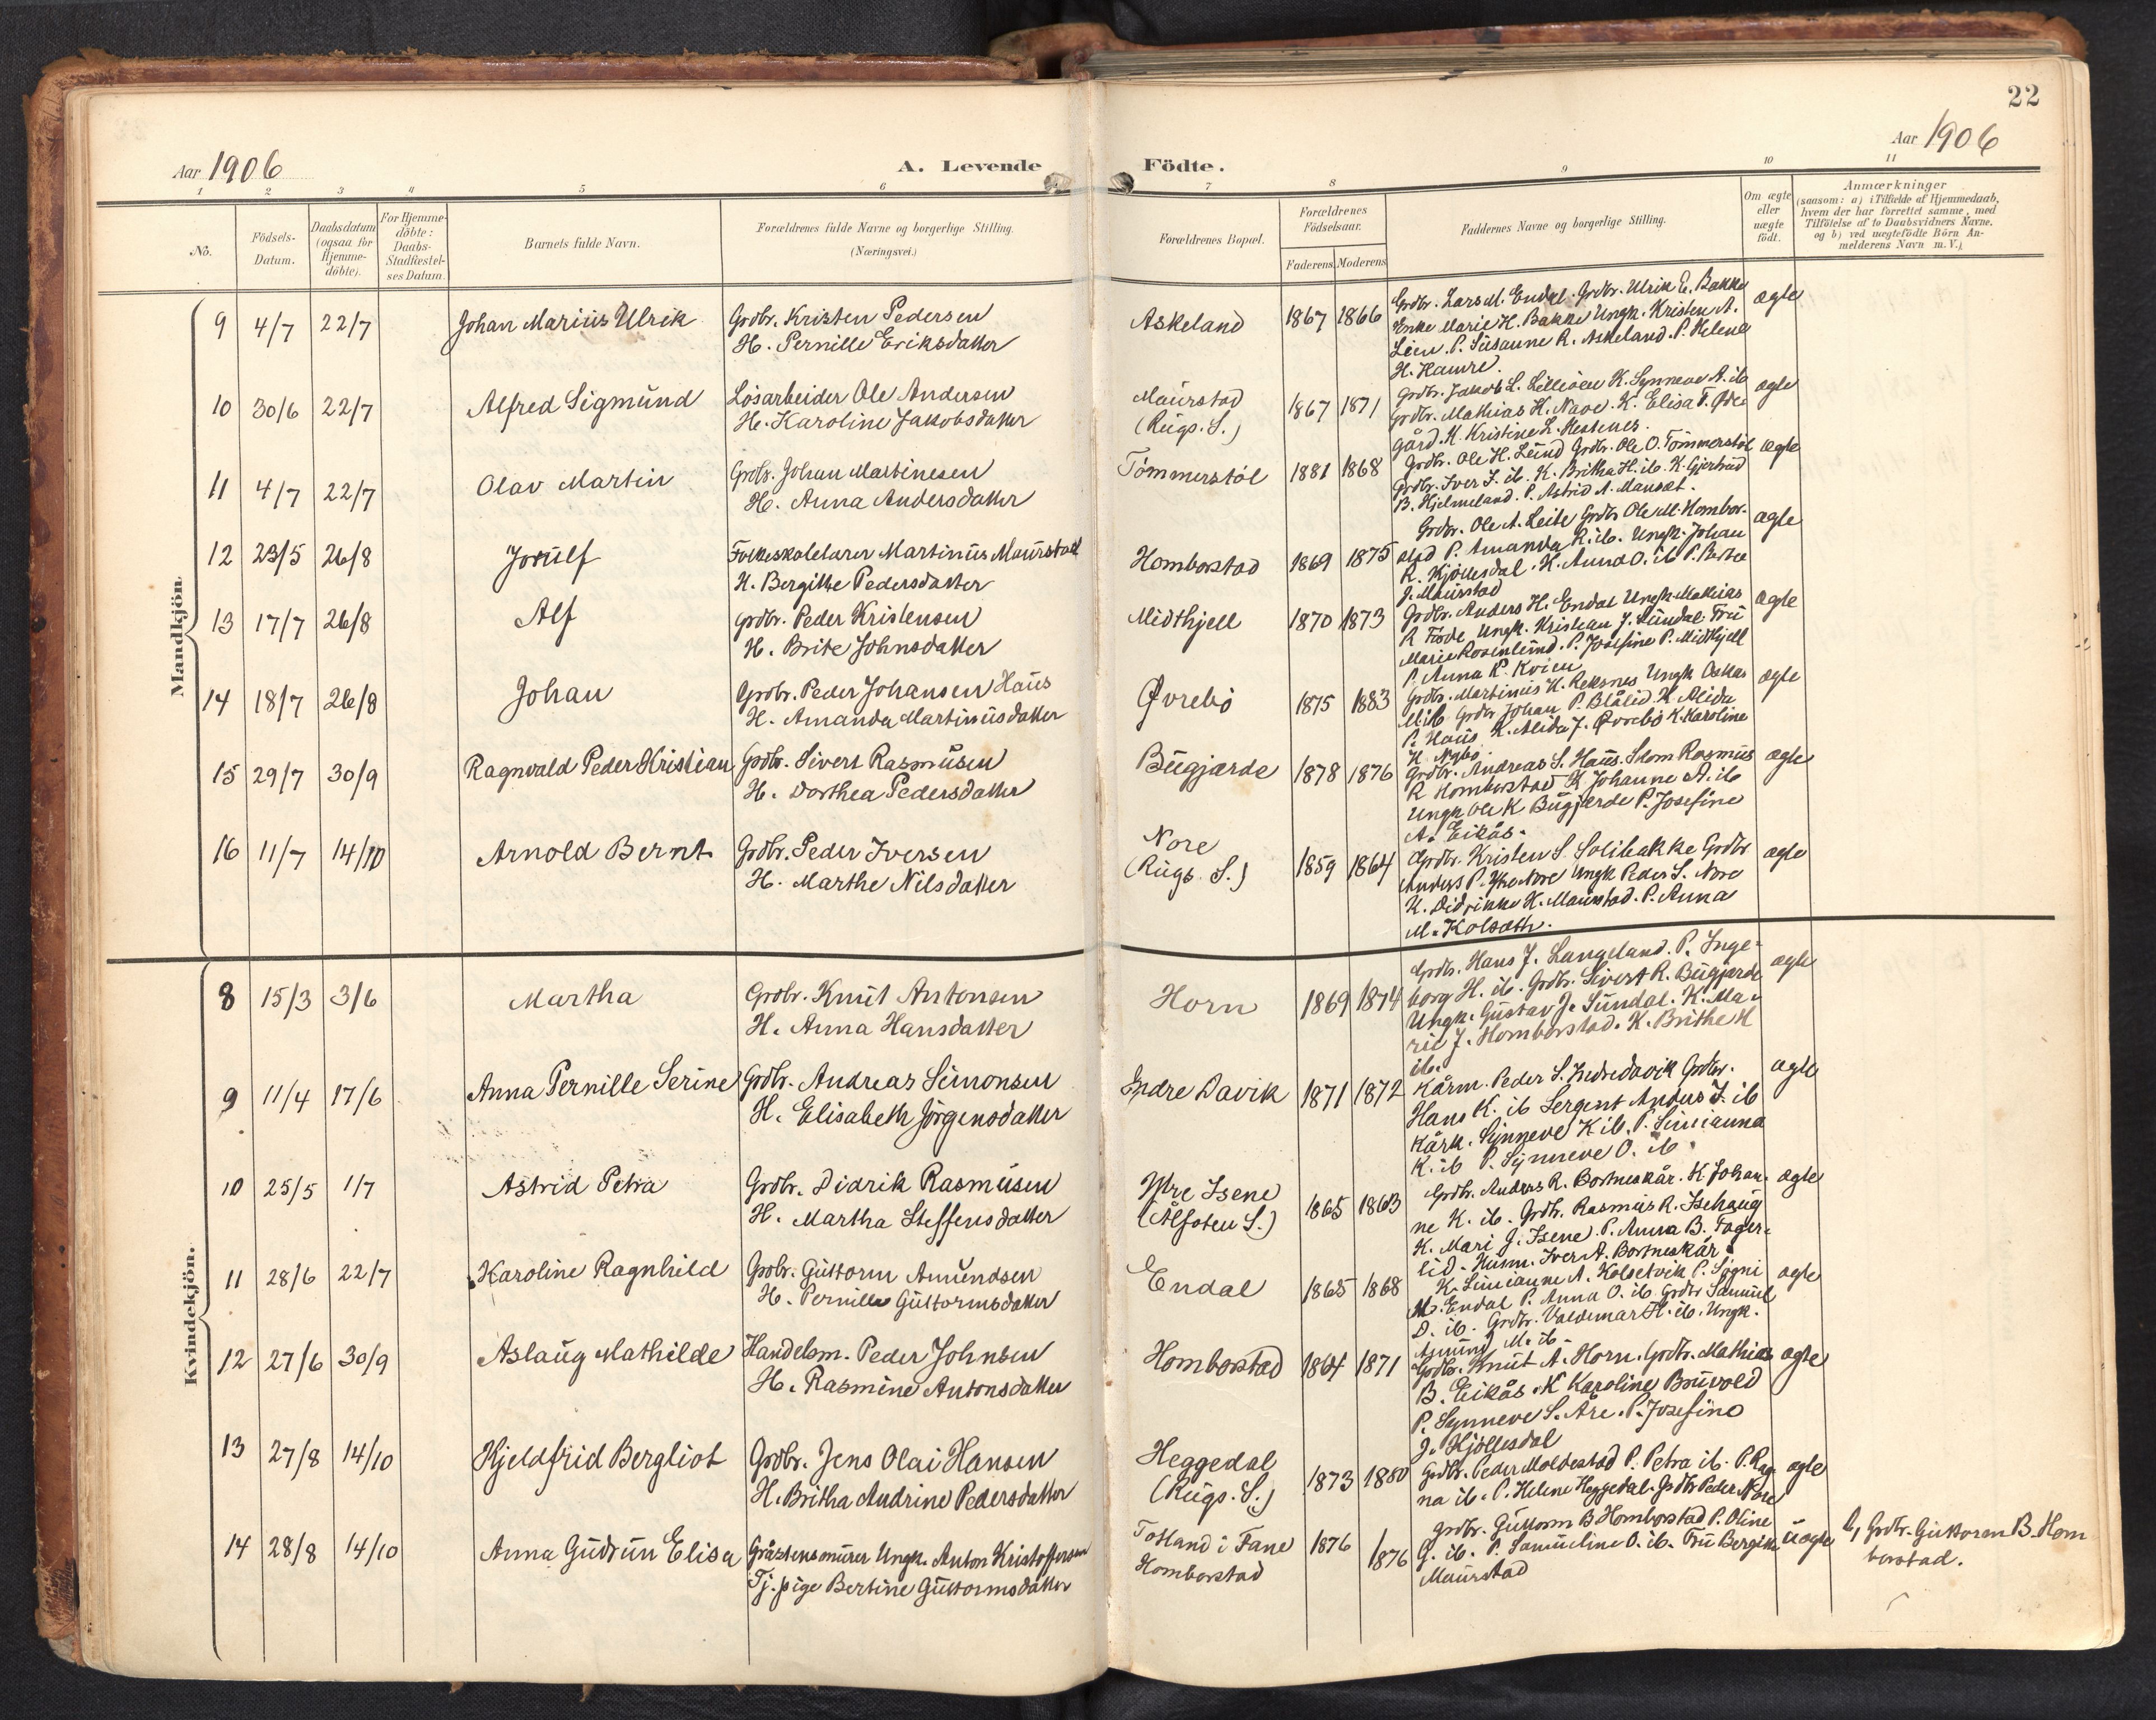 22
Aar 1906
A. Levende
Födte.
Aar 1906
1 2 3 4 5 6 7 8 9 10 11
No.
Födsels-Datum.
Daabsdatum (ogsaa for Hjemmedöbte).
For Hjemmedöbte: Daabs-Stadfæstelses Datum.
Barnets fulde Navn.
Forældrenes fulde Navne og borgerlige Stilling. (Næringsvei.)
Forældrenes Bopæl.
Forældrenes Födselsaar.
Faderens Moderens
Faddernes Navne og borgerlige Stilling.
Om ægte eller uægte födt.
Anmærkninger
(saasom: a) i Tilfælde af Hjemmedaab, hvem der har forrettet samme, med Tilföielse af to Daabsvidners Navne, og b) ved uægtefödte Börn Anmelderens Navn m. V.)
Mandkjön.
9 4/7 22/7 Johan Marius Ulrik
Grdbr. Kristen Pedersen
H. Pernille Eriksdatter
Askeland 1867 1866
Grdbr. Lars M. Endal. Grdbr. Ulrik E. Bakke
Enke Marie H. Bakke Ungk. Kristen A.
Lien. P. Susanne R. Askeland. P. Helene
H. Hamre.
ægte
10 30/6 22/7 Alfred Sigmund
Løsarbeider Ole Andersen
H. Karoline Jakobsdatter
Maurstad
(Rugs. S.) 1867 1871
Grdbr. Jakob L. Lilleøen K. Synneve A. ib
Grdbr. Mathias H. Nave. K. Elisa T. Øde
gård. K. Kristine L. Hestenes.
ægte
11 4/7 22/7 Olav Martin
Grdbr. Johan Martinesen
H. Anna Andersdatter
Tømmerstøl 1881 1868
Grdbr. Ole H. Lund Grdbr. Ole O. Tømmerstøl
Grdbr. Iver J. ib. K. Britha H. ib. K. Gjertrud
B. Hjelmeland. P. Astrid A. Mansæt.
ægte
12 23/5 26/8 Jorulf
Folkeskolelærer Martinus Maurstad
H. Bergithe Pedersdatter
Homborstad 1869 1875
Grdbr. Ole A. Leite Grdbr Ole M. Hombor-
stad P. Amanda R. ib. Ungk. Johan
R. Kjøllesdal. K. Anna O. ib P. Bertea
J. Maurstad
ægte
13 17/7 26/8 Alf
Grdbr. Peder Kristensen
H. Brite Johnsdatter
Midthjell 1870 1873
Grdbr. Anders H. Endal Ungk. Mathias
R Førde Ungk. Kristian J. Sundal. Fru
Marie Rosenlund. P. Josefine P. Midthjell
P. Anna K. Kvien
ægte
14 18/7 26/8 Johan
Grdbr. Peder Johansen Haus
H. Amanda Martinusdatter
Øvrebø 1875 1883
Grdbr. Martinus K. Reksnes Ungk Oskar
M ib Grdbr Johan P. Blålid. K. Alida
P. Haus K. Alida J. Øvrebø K. Karoline
K. Nybø.
ægte
15 29/7 30/9 Ragnvald Peder Kristian
Grdbr. Sivert Rasmusen
H. Dorthea Pedersdatter
Bugjærde 1878 1876
Grdbr. Andreas S. Haus. Skom Rasmus
R Homborstad K Johanne A. ib
Ungk Ole K Bugjærde P. Josefine
A. Eikås.
ægte
16 11/7 14/10 Arnold Bernt
Grdbr. Peder Iversen
H. Marthe Nilsdatter
Nore
(Rugs. S.) 1859 1864
Grdbr. Kristen S. Solibakke Grdbr
Anders P. Ytre Nore Ungk Peder S. Nore
K. Didrikke K. Maurstad. P. Anna
M. Kolsæth.
ægte
Kvindekjön.
8 15/3 3/6 Martha
Grdbr. Knut Antonsen
H. Anna Hansdatter
Horn 1869 1874
Grdbr. Hans J. Langeland. P. Inge-
borg H. ib. Grdbr. Sivert R. Bugjærde
Ungk. Gustav J. Sundal. K. Ma-
rie J. Homborstad. K. Brithe H
ib.
ægte
9 11/4 17/6 Anna Pernille Serine
Grdbr. Andreas Simonsen
H. Elisabeth Jørgensdatter
Indre Davik 1871 1872
Kårm. Peder S. Indredavik Grdbr.
Hans K. ib Sergent Anders J. ib
Kårk. Synneve K ib. P. Simianna
K. ib P. Synneve O. ib
ægte
10 25/5 1/7 Astrid Petra
Grdbr. Didrik Rasmusen
H. Martha Steffensdatter
Ytre Isene
(Ålfoten S.) 1865 1863
Grdbr. Anders R. Bortneskår. K Johan-
ne K. ib. Grdbr. Rasmus R. Isehaug
K. Mari J. Isene P. Anna B. Fager-
lid. Husm. Iver A. Bortneskår.
ægte
11 28/6 22/7 Karoline Ragnhild
Grdbr. Guttorm Amundsen
H. Pernille Guttormsdatter
Endal 1865 1868
K. Simianne A. Kolsetvik P. Signi
M. Endal P. Anna O. ib Grdbr Samuel
D. ib. Grdbr. Valdemar H. ib. Ungk.
Amund M. ib.
ægte
12 27/6 30/9 Aslaug Mathilde
Handelsm. Peder Johnsen
H. Rasmine Antonsdatter
Homborstad 1864 1871
Grdbr. Knut A. Horn. Grdbr. Mathias
B. Eikås. K Karoline Bruvold
P. Synneve S. Are. P. Josefine
J. Kjøllesdal
ægte
13 27/8 14/10 Hjeldfrid Bergliot
Grdbr. Jens Olai Hansen
H. Britha Andrine Pedersdatter
Heggedal
(Rugs. S.) 1873 1880
Grdbr. Peder Moldestad P. Petra ib. P. Rag-
na ib. P. Helene Heggedal. Grdbr Peder Nore
ægte
14 28/8 14/10 Anna Gudrun Elisa
Gråstensmurer Ungk. Anton Kristoffersen
Tj. pige Bertine Guttormsdatter
Totland i Fane 1876
Homborstad 1876
Grdbr. Guttorm B Homborstad P. Oline
G. ib. P. Samueline O. ib. Fru Bergithe
Maurstad
uægte
b, Grdbr. Guttorm B. Hom
borstad.